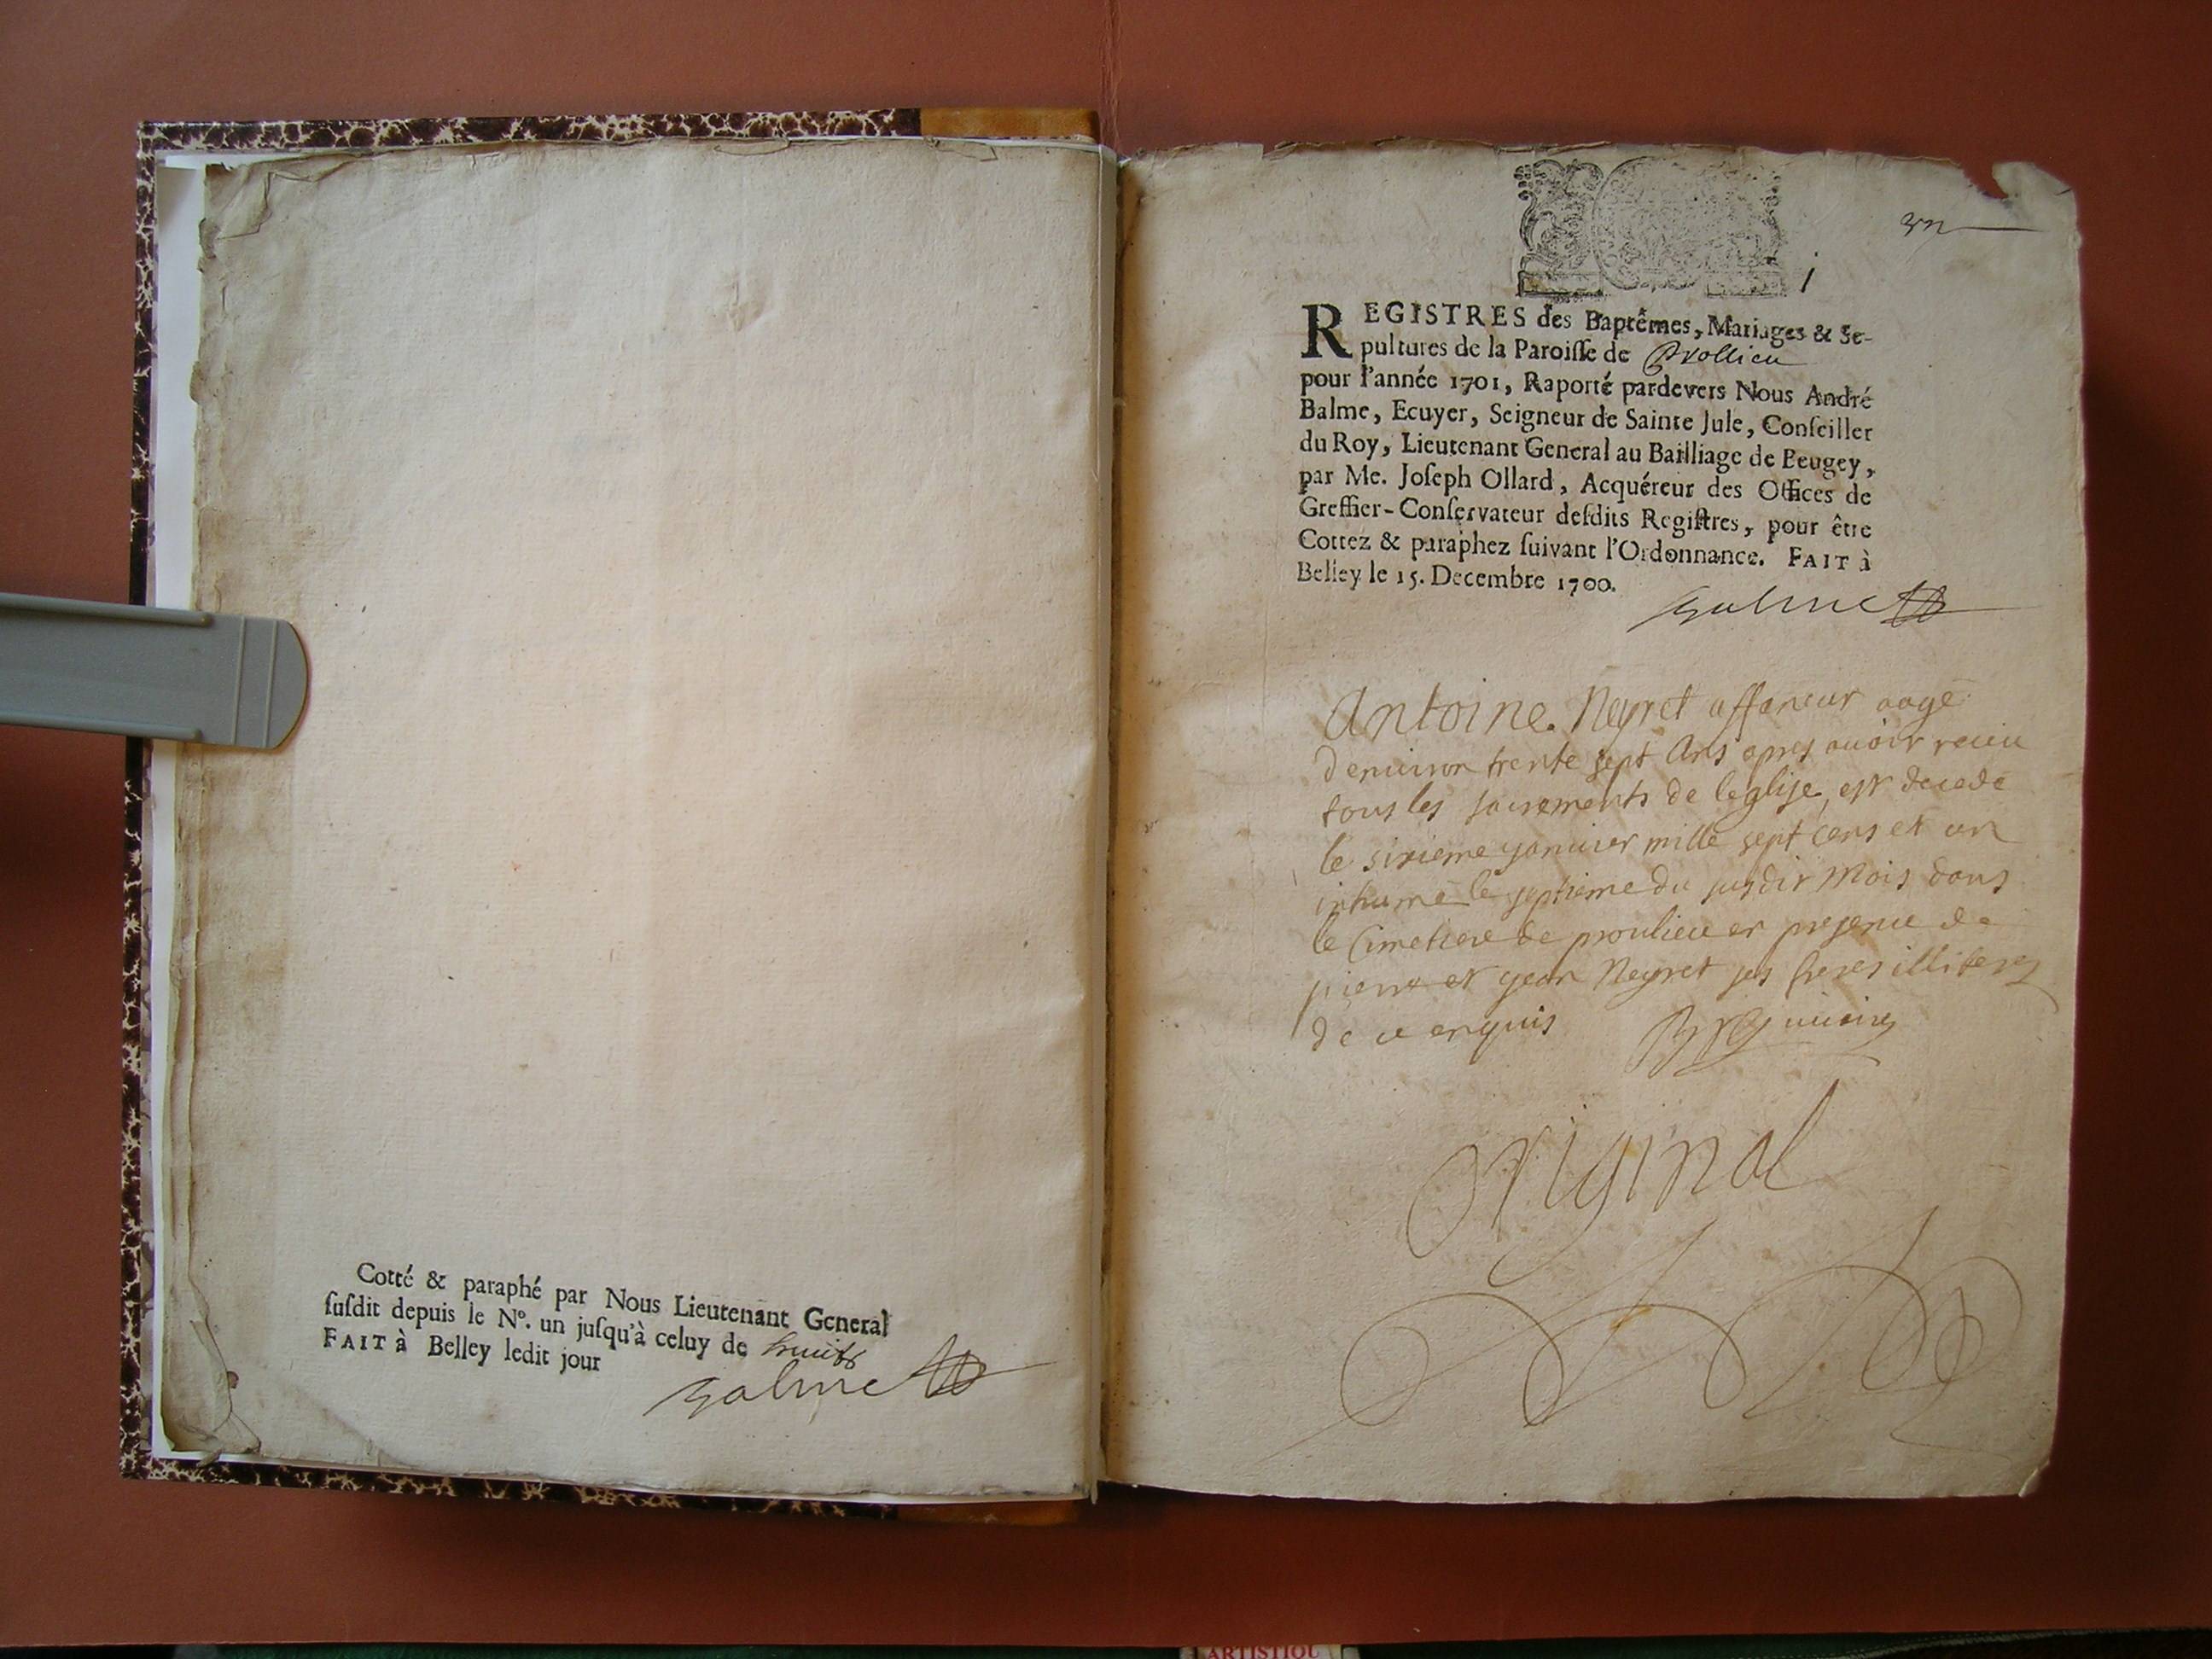 Cotté & paraphé par Nous Lieutenant General
susdit depuis le N°. un jusqu'à celuy de huit
FAIT à Belley ledit jour
Balme
un
i
REGISTRES des Baptêmes, Mariages & Se-
pultures de la Paroisse de Prollieu
pour l'année 1701, Raporté pardevers Nous André
Balme, Ecuyer, Seigneur de Sainte Jule, Conseiller
du Roy, Lieutenant General au Bailliage de Beugey,
par Me. Joseph Ollard, Acquéreur des Offices de
Greffier-Conservateur desdits Registres, pour être
Cottez & paraphez suivant l'Ordonnance. FAIT à
Belley le 15. Decembre 1700.
Balme
Antoine Neyret affaneur aagé
denuiron trente sept Ans apres auoir receu
tous les sacrements de leglise est decedé
le sixieme januier mille sept cens et un
inhumé le septieme du susdit mois dans
le Cimetiere de proulieu en presence de
pierre et jean Neyret ses freres illiteres
de ce enquis
original
ARTISTIQU